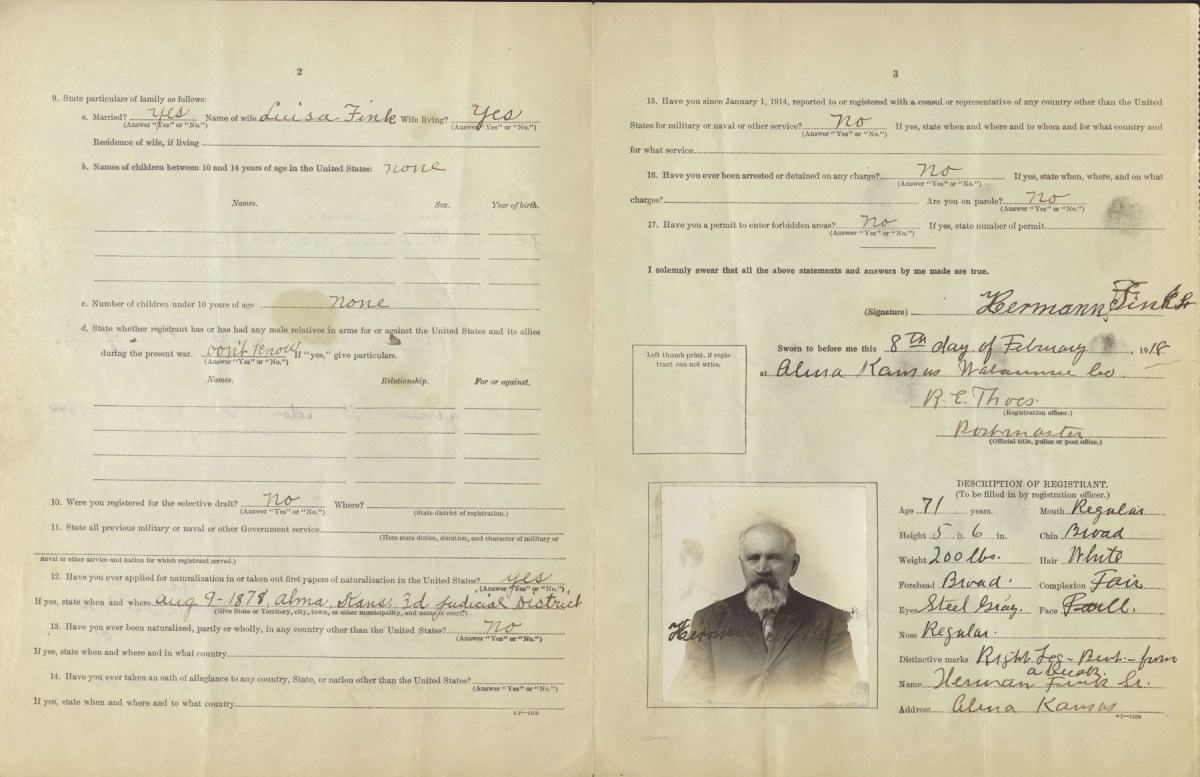 2
9. State particulars of family as follows:
a. Married? yes Name of wife Luisa Fink Wife living? Yes
(Answer "Yes" or "No.") (Answer "Yes" or "No.")
Residence of wife, if living
b. Names of children between 10 and 14 years of age in the United States: none
Names. Sex. Year of birth.
c. Number of children under 10 years of age none
d. State whether registrant has or has had any male relatives in arms for or against the United States and its allies
during the present war. don't know If "yes," give particulars.
(Answer "Yes" or "No.")
Names. Relationship. For or against.
10. Were you registered for the selective draft? No Where?
(Answer "Yes" or "No.") (State district of registration.)
11. State all previous military or naval or other Government service
(Here state duties, duration, and character of military or
naval or other service and nation for which registrant served.)
12. Have you ever applied for naturalization in or taken out first papers of naturalization in the United States? yes
(Answer "Yes" or "No.")
If yes, state when and where aug 9-1878, Alma, Kans; 3d Judicial District
(Give State or Territory, city, town, or other municipality, and name of court.)
13. Have you ever been naturalized, partly or wholly, in any country other than the United States? No
(Answer "Yes" or "No.")
If yes, state when and where and in what country
14. Have you ever taken an oath of allegiance to any country, State, or nation other than the United States?
(Answer "Yes" or "No.")
If yes, state when and where and to what country
3
15. Have you since January 1, 1914, reported to or registered with a consul or representative of any country other than the United
States for military or naval or other service? No If yes, state when and where and to whom and for what country and
(Answer "Yes" or "No.")
for what service
16. Have you ever been arrested or detained on any charge? No If yes, state when, where, and on what
(Answer "Yes" or "No.")
charges? Are you on parole? No
(Answer "Yes" or "No.")
17. Have you a permit to enter forbidden areas? No If yes, state number of permit
(Answer "Yes" or "No.")
I solemnly swear that all the above statements and answers by me made are true.
(Signature) Hermann Fink Sr
Left thumb print, if regis-
trant can not write.
Sworn to before me this 8th day of February, 1918
at Alma Kansas Wabaunsee Co
R. E. Thoes
(Registration officer.)
Postmaster
(Official title, police or post office.)
Herman
DESCRIPTION OF REGISTRANT.
(To be filled in by registration officer.)
Age 71 years. Mouth Regular
Height 5 ft. 6 in. Chin Broad
Weight 200 lbs. Hair White
Forehead Broad. Complexion Fair
Eyes Steel Gray. Face Full.
Nose Regular.
Distinctive marks Right Leg - Bent - from
a break.
Name Herman Fink Sr.
Address Alma Kansas